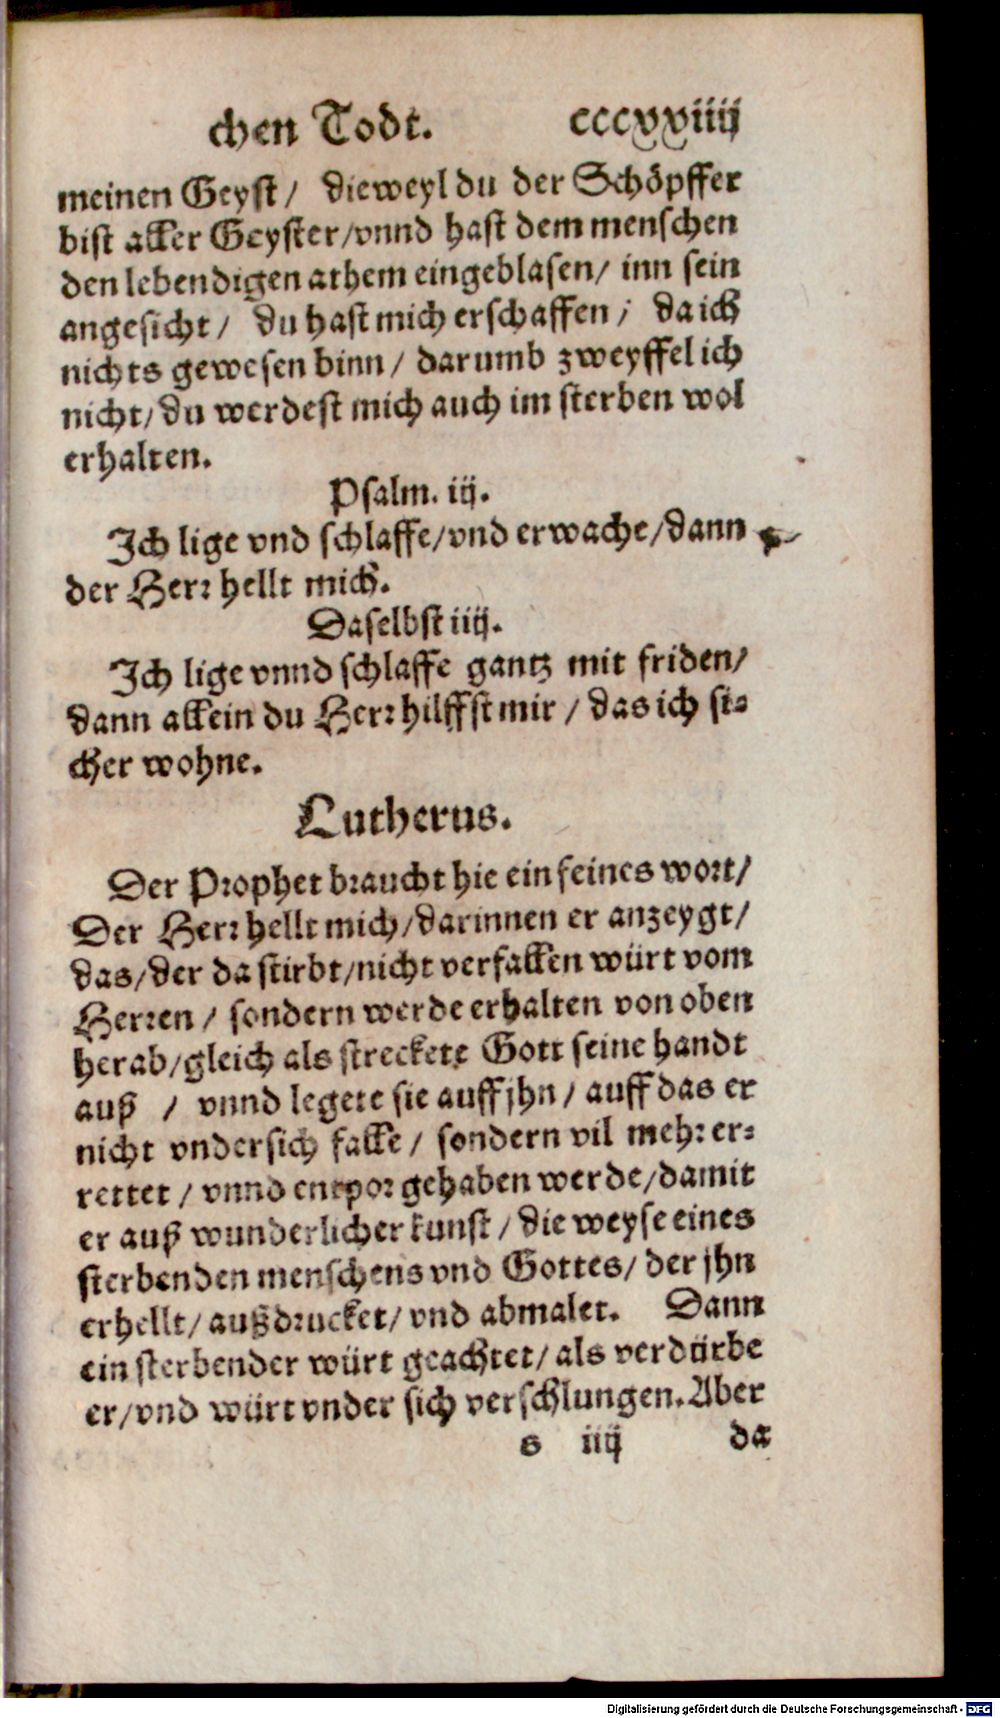 chen Todt. cccxxiiij
meinen Geyst / dieweyl du der Schöpffer
bist aller Geyster/vnnd hast dem menschen
den lebendigen athem eingeblasen/ inn sein
angesicht / du hast mich erschaffen / da ich
nichts gewesen binn / darumb zweyffel ich
nicht/du werdest mich auch im sterben wol
erhalten.
Psalm. iij.
Ich lige vnd schlaffe/vnd erwache/dann
der Herr hellt mich.
Daselbst iiij.
Ich lige vnnd schlaffe gantz mit friden/
dann allein du Herr hilffst mir / das ich si-
cher wohne.
Lutherus.
Der Prophet braucht hie ein feines wort/
Der Herr hellt mich/darinnen er anzeygt/
das/der da stirbt/nicht verfallen würt vom
Herren / sondern werde erhalten von oben
herab/gleich als streckete Gott seine handt
auß / vnnd legete sie auff jhn / auff das er
nicht vndersich falle / sondern vil mehr er-
rettet / vnnd entpor gehaben werde/damit
er auß wunderlicher kunst / die weyse eines
sterbenden menschens vnd Gottes/ der jhn
erhellt/ außdrucket/ vnd abmalet. Dann
ein sterbender würt geachtet/ als verdürbe
er/vnd würt vnder sich verschlungen. Aber
s iiij da
Digitalisierung gefördert durch die Deutsche Forschungsgemeinschaft - DFG